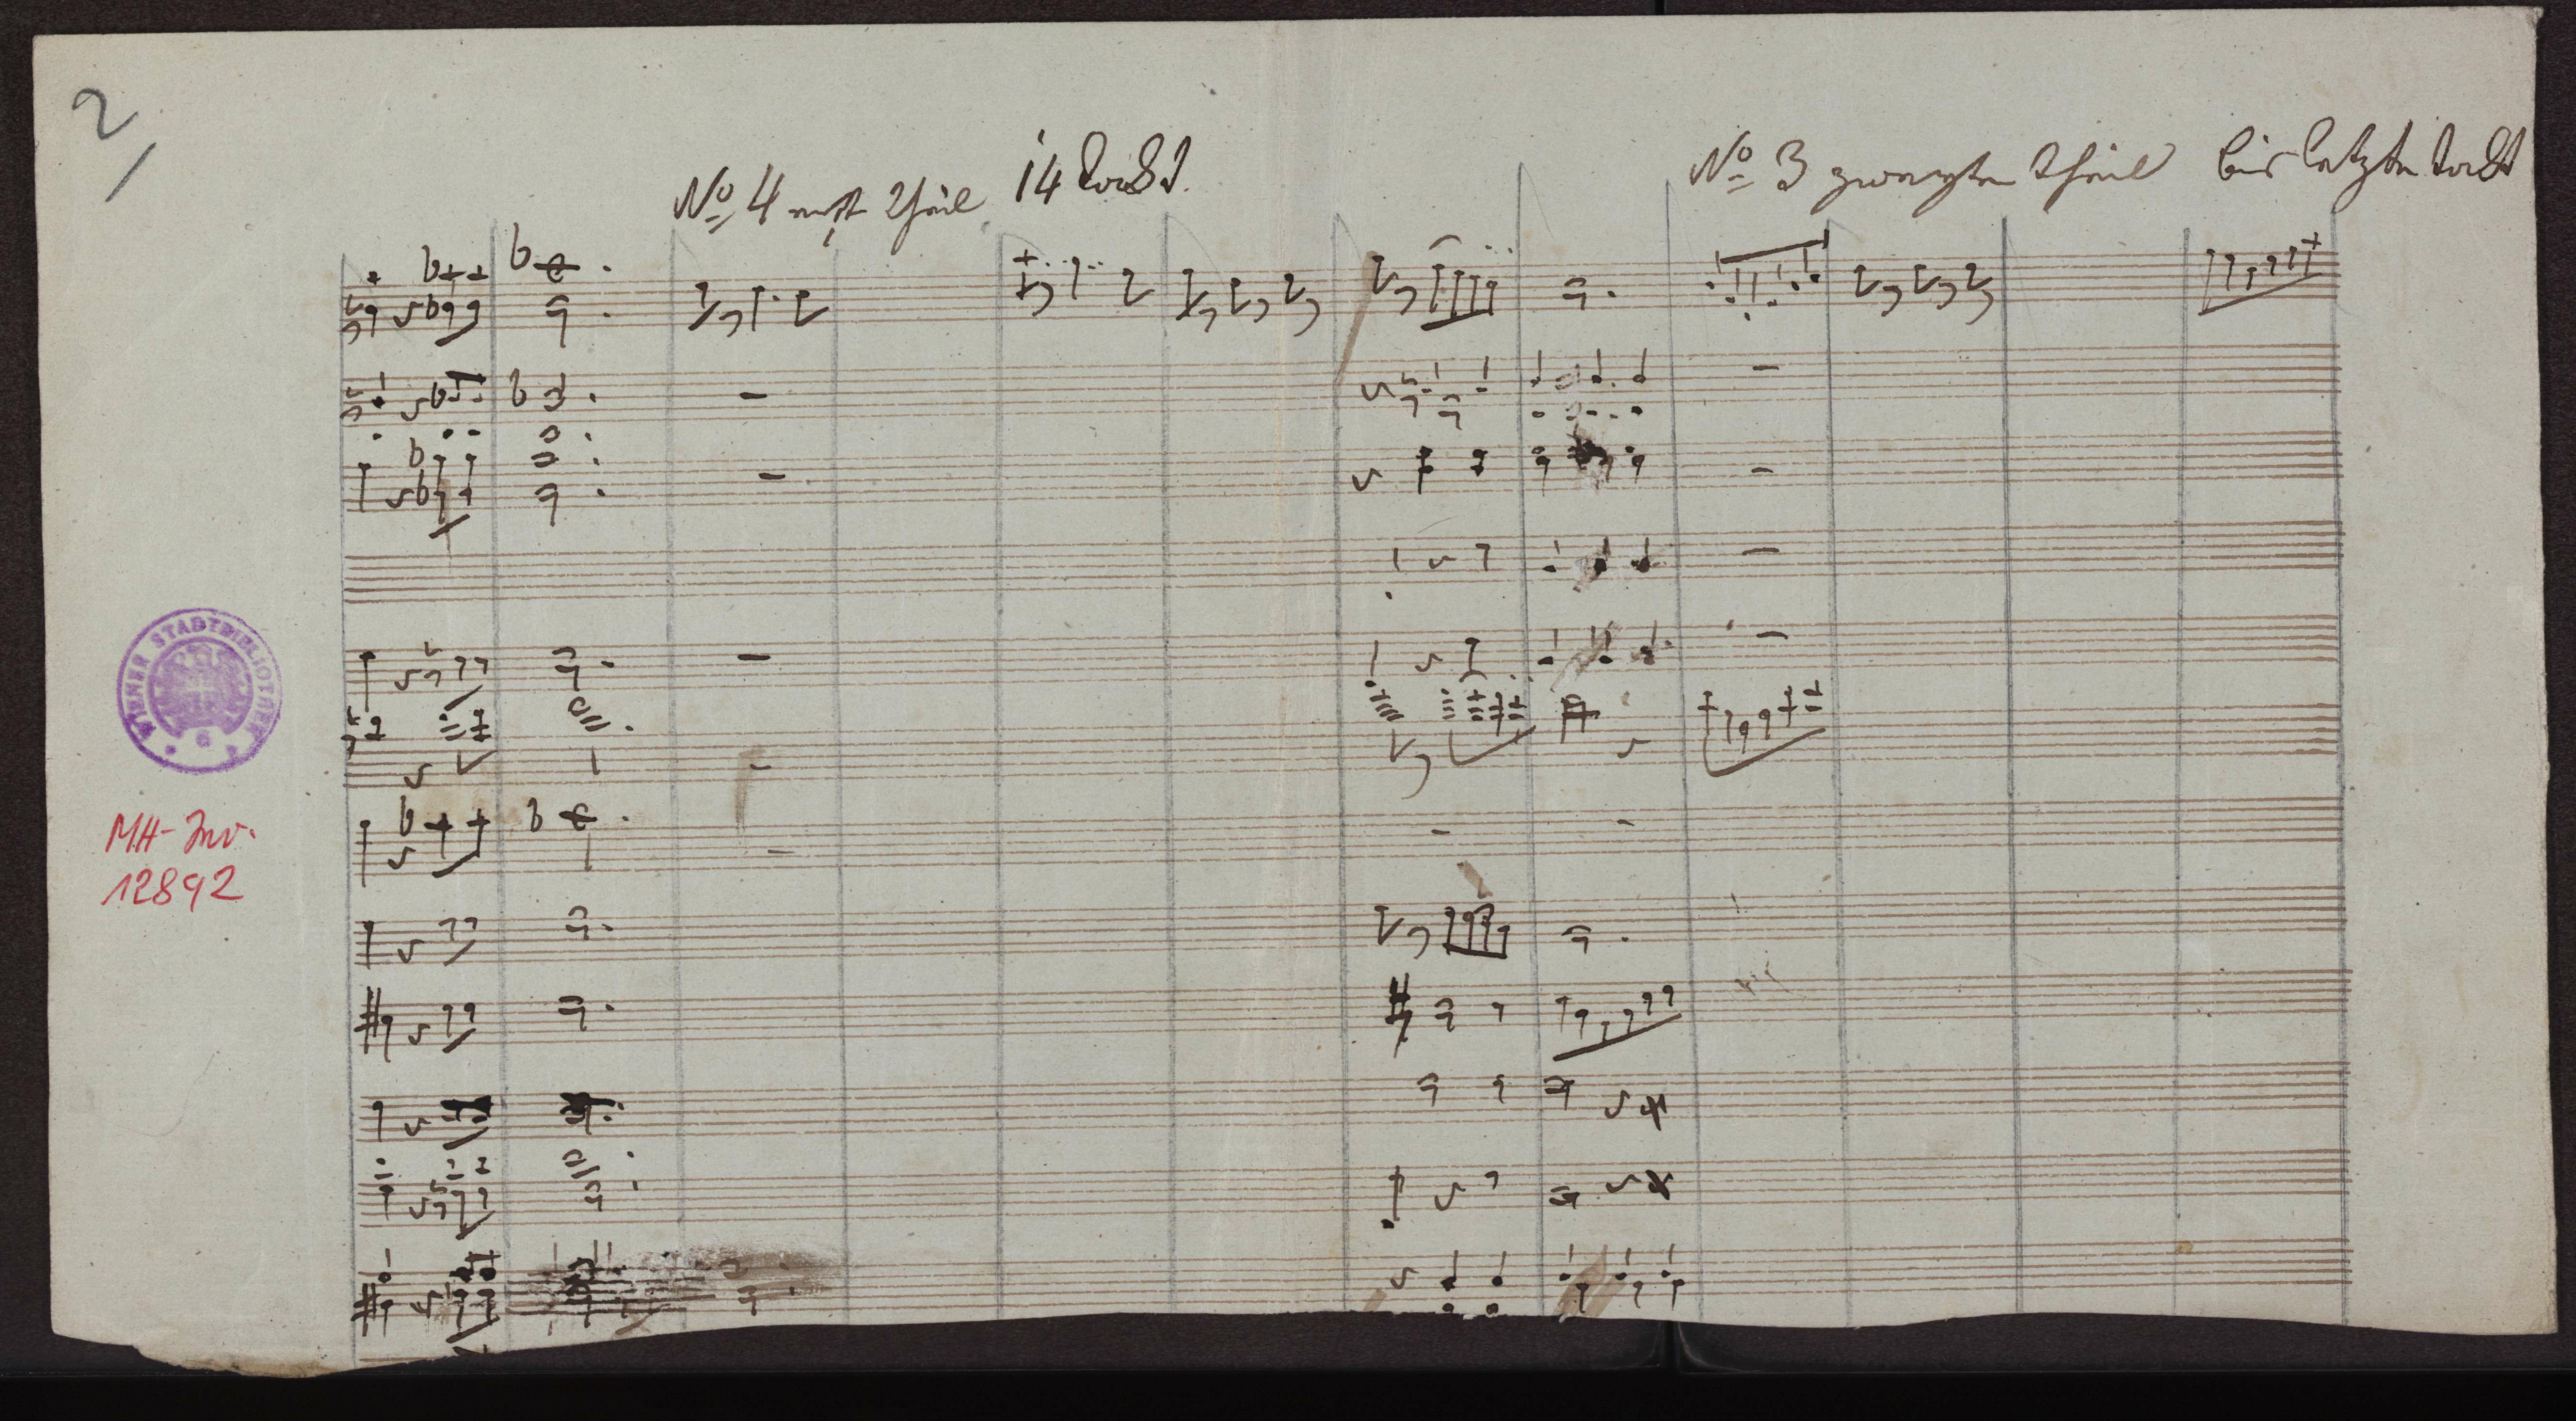 2
No 4 erst Theil 14 Tackt.
No 3 zweyten Theil bis letzten Tackt
WIENER STADTBIBLIOTHEK
MH-Inv.
12892